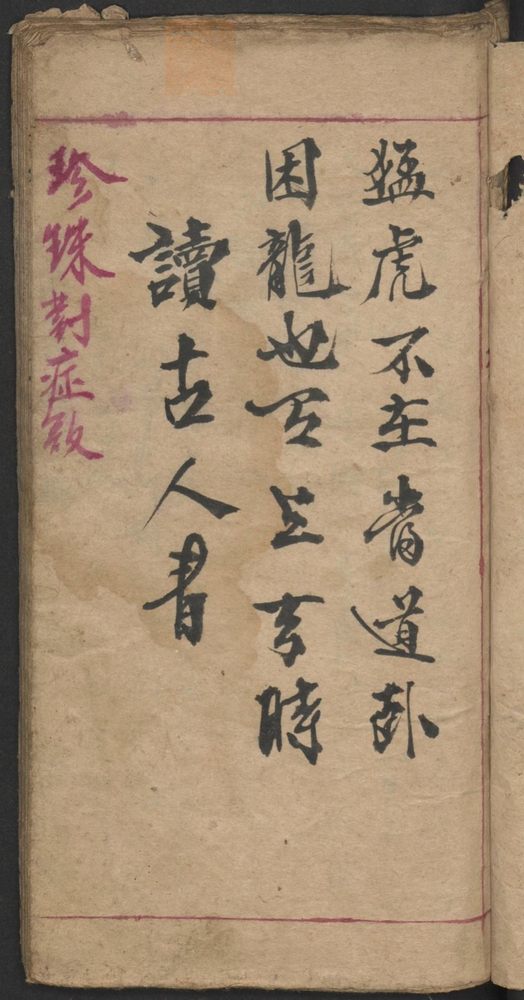 猛虎不在當道卧
困龍也有上天時
讀古人書
珍珠對症改